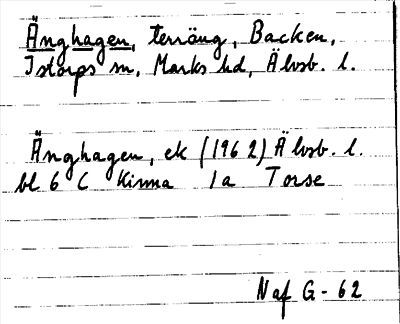 Änghagen, terräng, Backen,
Istorps sn, Marks hd, Älvsb. l.
Änghagen, ek (1962) Älvsb. l.
bl 6 C Kinna 1a Torse
Naf G-62